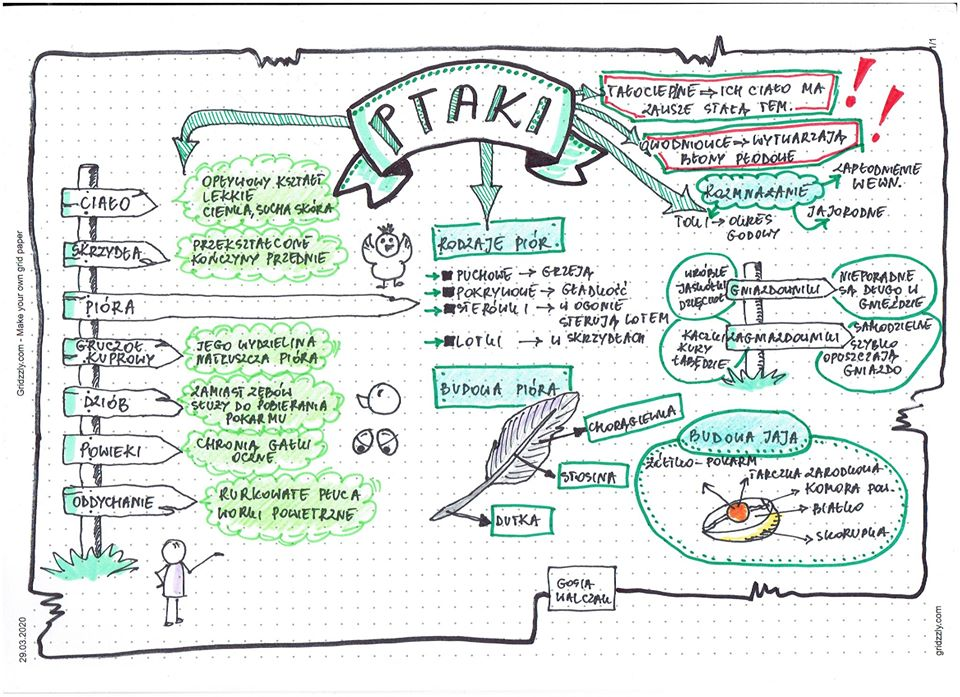 PTAKI
STAŁOCIEPLNE → ICH CIAŁO MA
ZAWSZE STAŁĄ TEM.
OWODNIOWCE → WYTWARZAJĄ
BŁONY PŁODOWE
ROZMNAŻANIE
ZAPŁODNIENIE
WEWN.
JAJORODNE
TOKI → OKRES
GODOWY
CIAŁO
OPŁYWOWY KSZTAŁT
LEKKIE
CIENKA, SUCHA SKÓRA
SKRZYDŁA
PRZEKSZTAŁCONE
KOŃCZYNY PRZEDNIE
PIÓRA
GRUCZOŁ
KUPROWY
JEGO WYDZIELINA
NATŁUSZCZA PIÓRA
DZIÓB
ZAMIAST ZĘBÓW
SŁUŻY DO POBIERANIA
POKARMU
POWIEKI
CHRONIĄ GAŁKI
OCZNE
ODDYCHANIE
RURKOWATE PŁUCA
WORKI POWIETRZNE
RODZAJE PIÓR
PUCHOWE → GRZEJĄ
POKRYWOWE → GŁADKOŚĆ
STERÓWKI → W OGONIE
STERUJĄ LOTEM
LOTKI → W SKRZYDŁACH
BUDOWA PIÓRA
CHORĄGIEWKA
STOSINA
DUTKA
WRÓBLE
JASKÓŁKI
DZIĘCIOŁ
GNIAZDOWNIKI
NIEPORADNE
SĄ DŁUGO W
GNIEŹDZIE
KACZKI
KURY
ŁABĘDZIE
ZAGNIAZDOWNIKI
SAMODZIELNE
SZYBKO
OPOSZCZAJĄ
GNIAZDO
BUDOWA JAJA
ŻÓŁTKO - POKARM
TARCZKA ZARODKOWA
KOMORA POW.
BIAŁKO
SKORUPKA
GOSIA
WALCZAK
Gridzzly.com - Make your own grid paper
29.03.2020
1/1
gridzzly.com